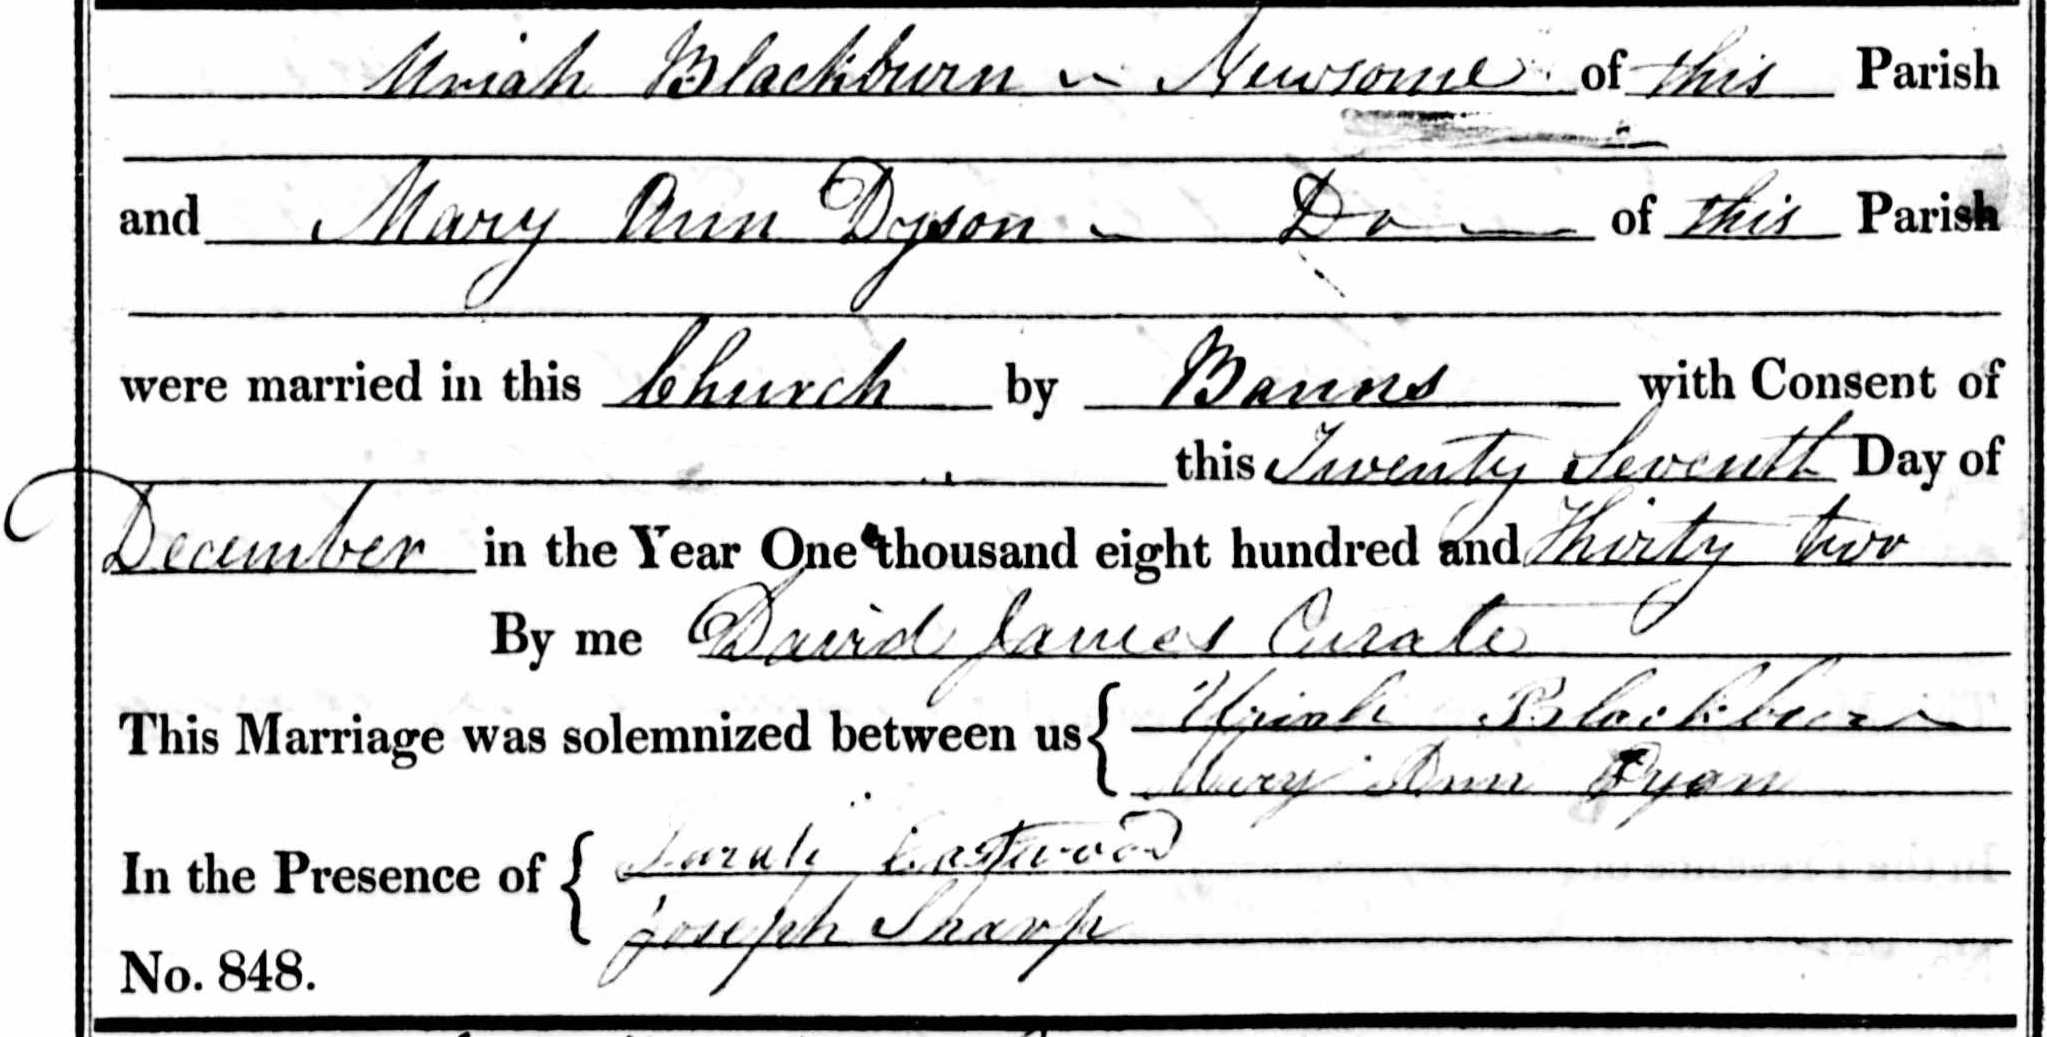 Uriah Blackburn ~ Newsome of this Parish
and Mary Ann Dyson ~ Do — of this Parish
were married in this Church by Banns with Consent of
this Twenty Seventh Day of
December in the Year One thousand eight hundred and Thirty two
By me David James Curate
This Marriage was solemnized between us { Uriah Blackburn
Mary Ann Dyson
In the Presence of { Sarah Eastwood
Joseph Sharp
No. 848.